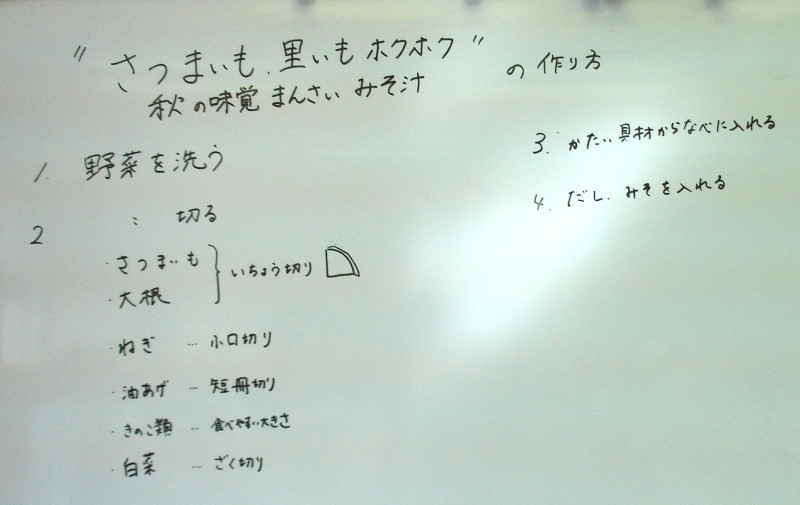 "さつまいも.里いもホクホク"の作り方
秋の味覚まんさいみそ汁
1. 野菜を洗う
2 : 切る
・さつまいも
・大根
} いちょう切り
・ねぎ … 小口切り
・油あげ … 短冊切り
・きのこ類 … 食べやすい大きさ
・白菜 … ざく切り
3. かたい具材からなべに入れる
4. だし.みそを入れる